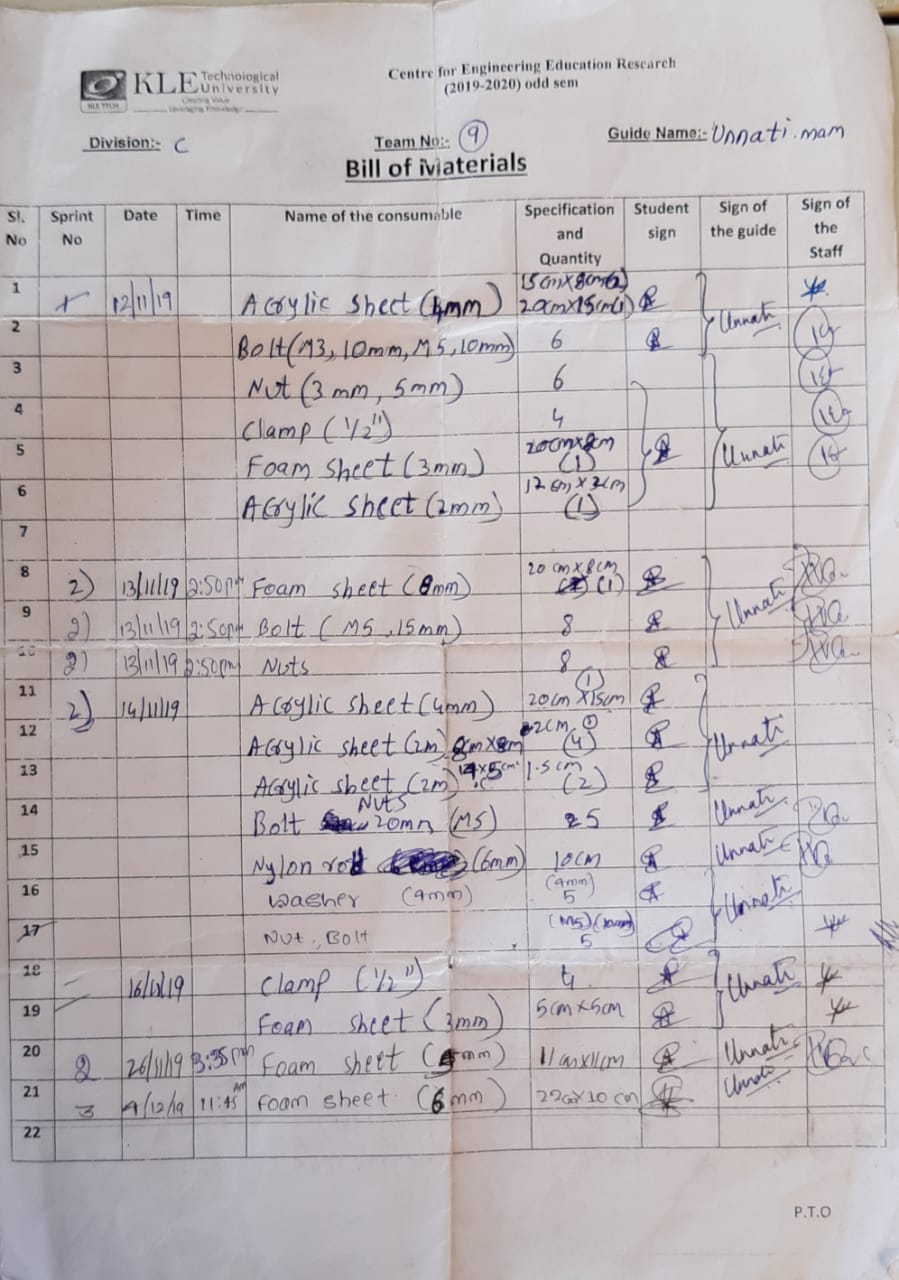 KLE Technological University
Creating Value
Leveraging Knowledge
KLE TECH
Centre for Engineering Education Research
(2019-2020) odd sem
Division:- C
Team No:- 9
Guide Name:- Unnati.mam
Bill of Materials
Sl. No Sprint No Date Time Name of the consumable Specification and Quantity Student sign Sign of the guide Sign of the Staff
1 12/11/19 Acrylic sheet (4mm) 15cm×8cm 20cm×15cm Unnati
2 Bolt (M3, 10mm, M5, 10mm) 6
3 Nut (3 mm, 5mm) 6
4 Clamp (1/2") 4
5 Foam sheet (3mm) 20cm×8cm (1) Unnati
6 Acrylic sheet (2mm) 12cm×2cm (1)
7
8 2) 13/11/19 2:50pm Foam sheet (8mm) 20 cm×8cm (1)
9 2) 13/11/19 2:50pm Bolt (M5, 15mm) 8 Unnati
10 2) 13/11/19 2:50pm Nuts 8
11 2) 14/11/19 Acrylic sheet (4mm) 20cm×15cm (1)
12 Acrylic sheet (2m) 2cm (4) Unnati
13 Acrylic sheet (2m) 1.5cm (2)
14 Bolt Nuts 20mm (M5) 25 Unnati
15 Nylon rod (6mm) 10cm Unnati
16 Washer (4mm) (4mm) 5 Unnati
17 Nut, Bolt (M5) 5
18 Clamp (1/2") 4 Unnati
19 Foam sheet (3mm) 5cm×5cm
20 2 26/11/19 3:35pm Foam sheet (5mm) 11cm×11cm Unnati
21 3 9/12/19 11:45 AM Foam sheet (6mm) 22cm×10cm Unnati
22
P.T.O